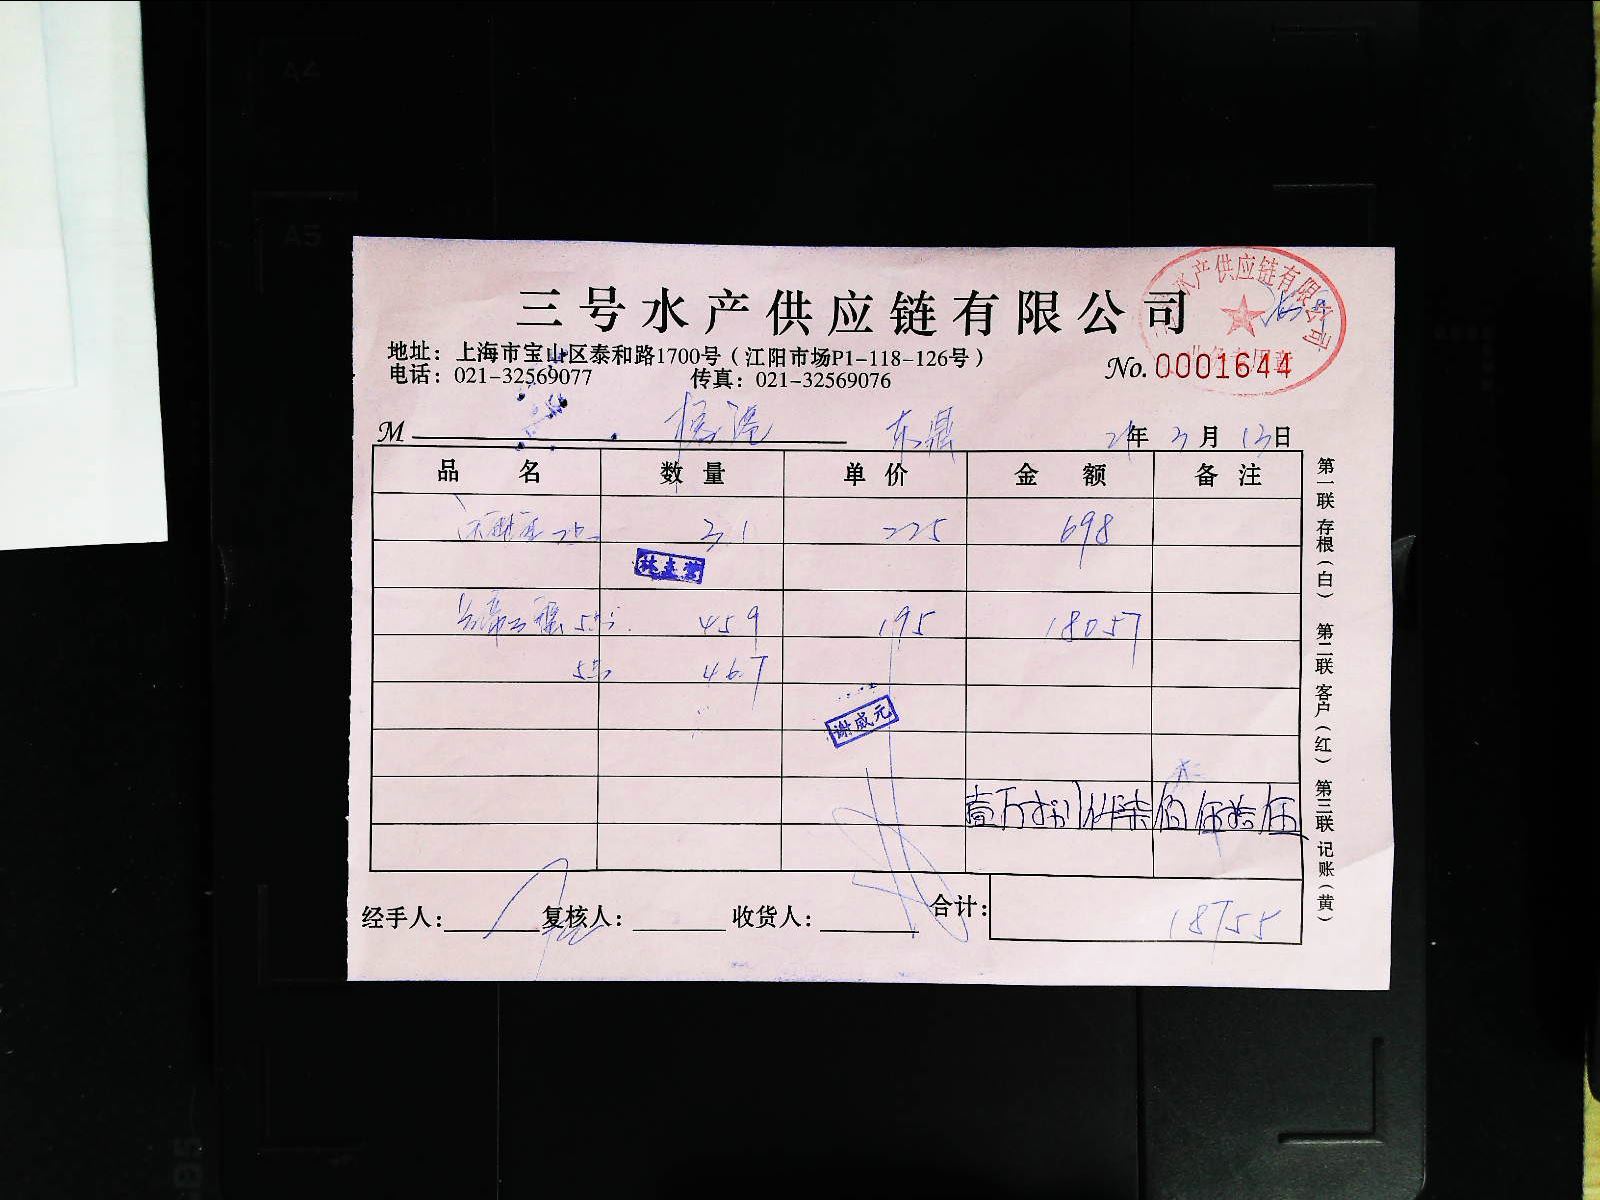 三号水产供应链有限公司
地址：上海市宝山区泰和路1700号（江阳市场P1-118-126号）
电话：021-32569077 传真：021-32569076
No. 0001644
水产供应链有限公司
M 东鼎 21年3月13日
品名 数量 单价 金额 备注
3.1 225 698
林主营
45.9 195 18057
46.7
谢威元
壹万捌仟柒佰伍拾伍
经手人： 复核人： 收货人： 合计： 18755
第一联 存根（白） 第二联 客户（红） 第三联 记账（黄）
A4
A5
B5